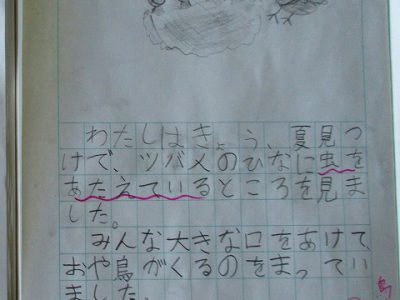 わたしはきょう、夏見つ
けで、ツバメのひなに虫を
あたえているところを見ま
した。
みんな大きな口をあけて、
おや鳥がくるのをまってい
ました。
鳥